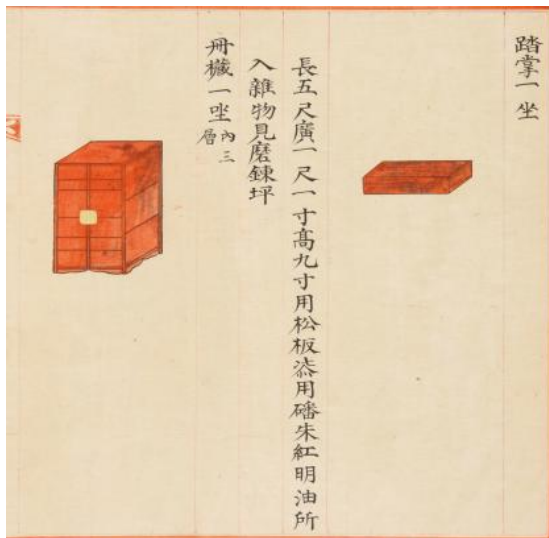 踏掌一坐
長五尺廣一尺一寸高九寸用松板柒用磻朱紅明油所
入雜物見磨鍊坪
冊欌一坐
內三
層